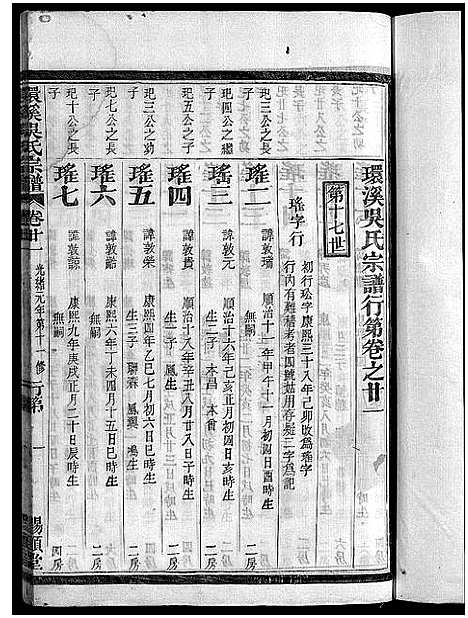 環溪吳氏宗譜行第卷之廿
第十七世
瑤字行
初行玜字康熙三十八年己卯改為瑤字
行內有難稽考者四號姑用存疑三字為記
玘三公之長
子
瑤二
諱敦瑞
順治十一年甲午十一月初四日酉時生
無嗣
二房
玘四公之繼
子
瑤三
諱敦元
順治十六年己亥正月初四日亥時生
生二子
本昌
本會
二房
玘五公之子
瑤四
諱敦貴
順治十八年辛丑八月廿八日子時生
生一子
鳳生
二房
玘三公之幼
子
瑤五
諱敦榮
康熙四年乙巳七月初六日巳時生
生三子
瑞春
鳳興
鳴生
二房
玘七公之長
子
瑤六
諱敦諧
康熙六年丁未四月十五日巳時生
無嗣
二房
玘十公之長
子
瑤七
諱敦諒
康熙九年庚戌正月二十日辰時生
無嗣
四房
環溪吳氏宗譜
卷廿
光緒元年第十一修
行第
一